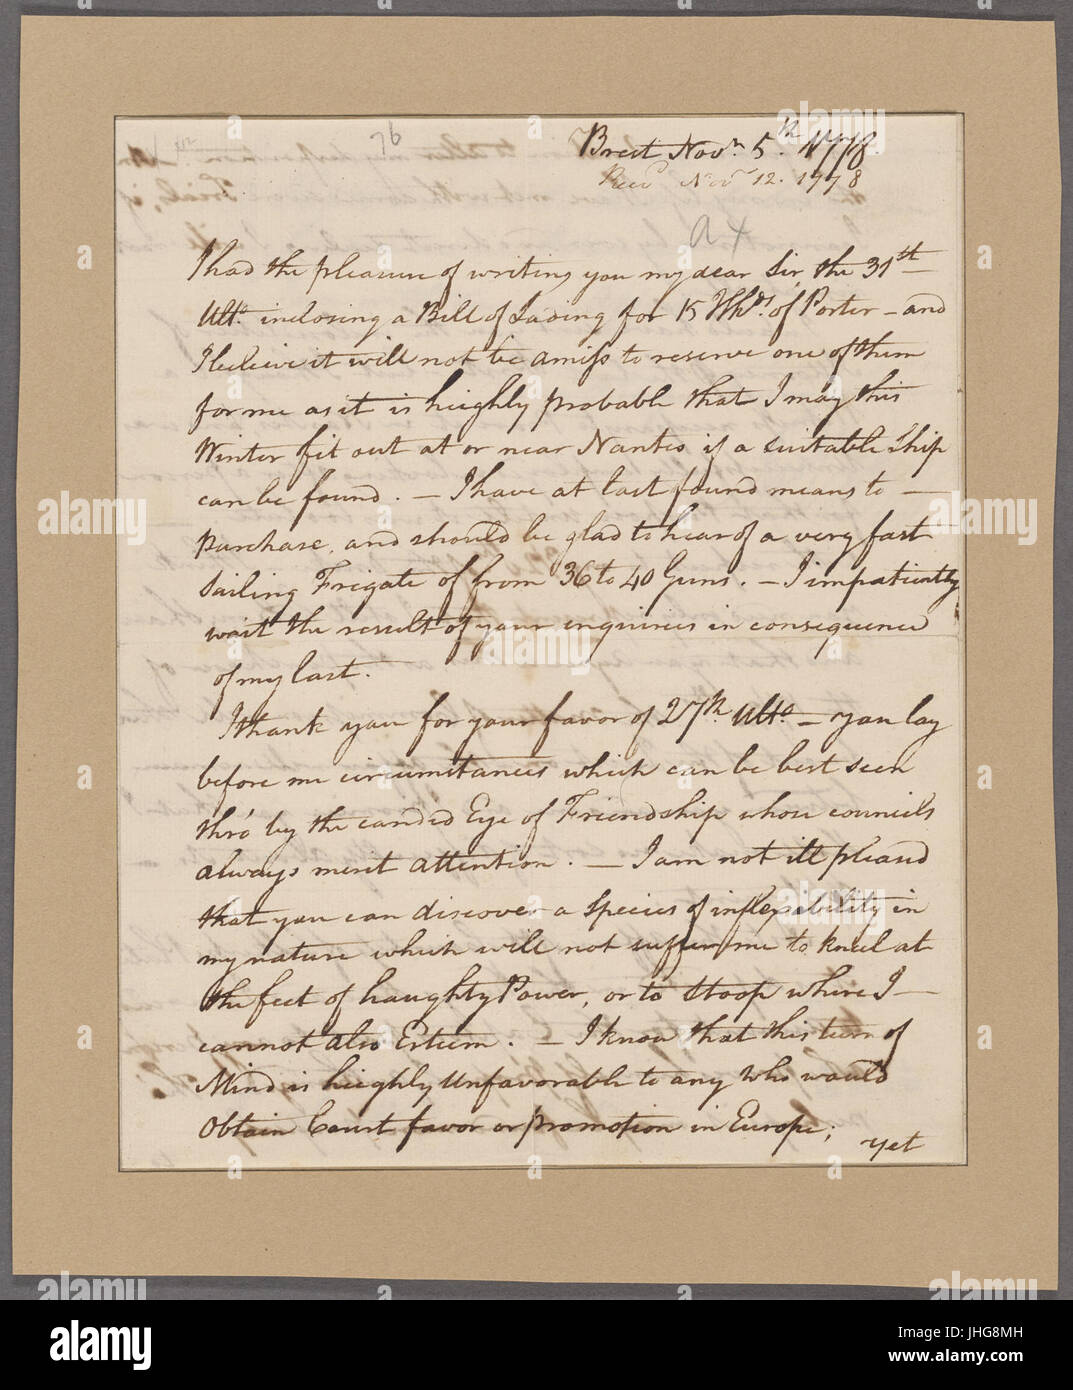 76
Brest Novr. 5th. 1778.
Recd Novr 12. 1778
a x
I had the pleasure of writing you my dear Sir, the 31st
Ulto. inclosing a Bill of Lading for 15 Hhds. of Porter – and
I believe it will not be amiss to reserve one of them
for me as it is heighly probable that I may this
Winter fit out at or near Nantes if a suitable Ship
can be found. – I have at last found means to –
purchase, and should be glad to hear of a very fast
Sailing Frigate of from 36 to 40 Guns. – I impatiently
wait the result of your inquiries in consequence
of my last.
I thank you for your favor of 27th Ulto – you lay
before me circumstances which can be best seen
thro' by the candid Eye of Friendship whose councils
always merit attention. – I am not ill pleased
that you can discover a Species of inflexibility in
my nature which will not suffer me to kneel at
the feet of haughty Power, or to Stoop where I –
cannot also Esteem. – I know that this turn of
Mind is heighly Unfavorable to any Who would
Obtain Court favor or promotion in Europe;
yet
alamy
Image ID: JHG8MH
www.alamy.com